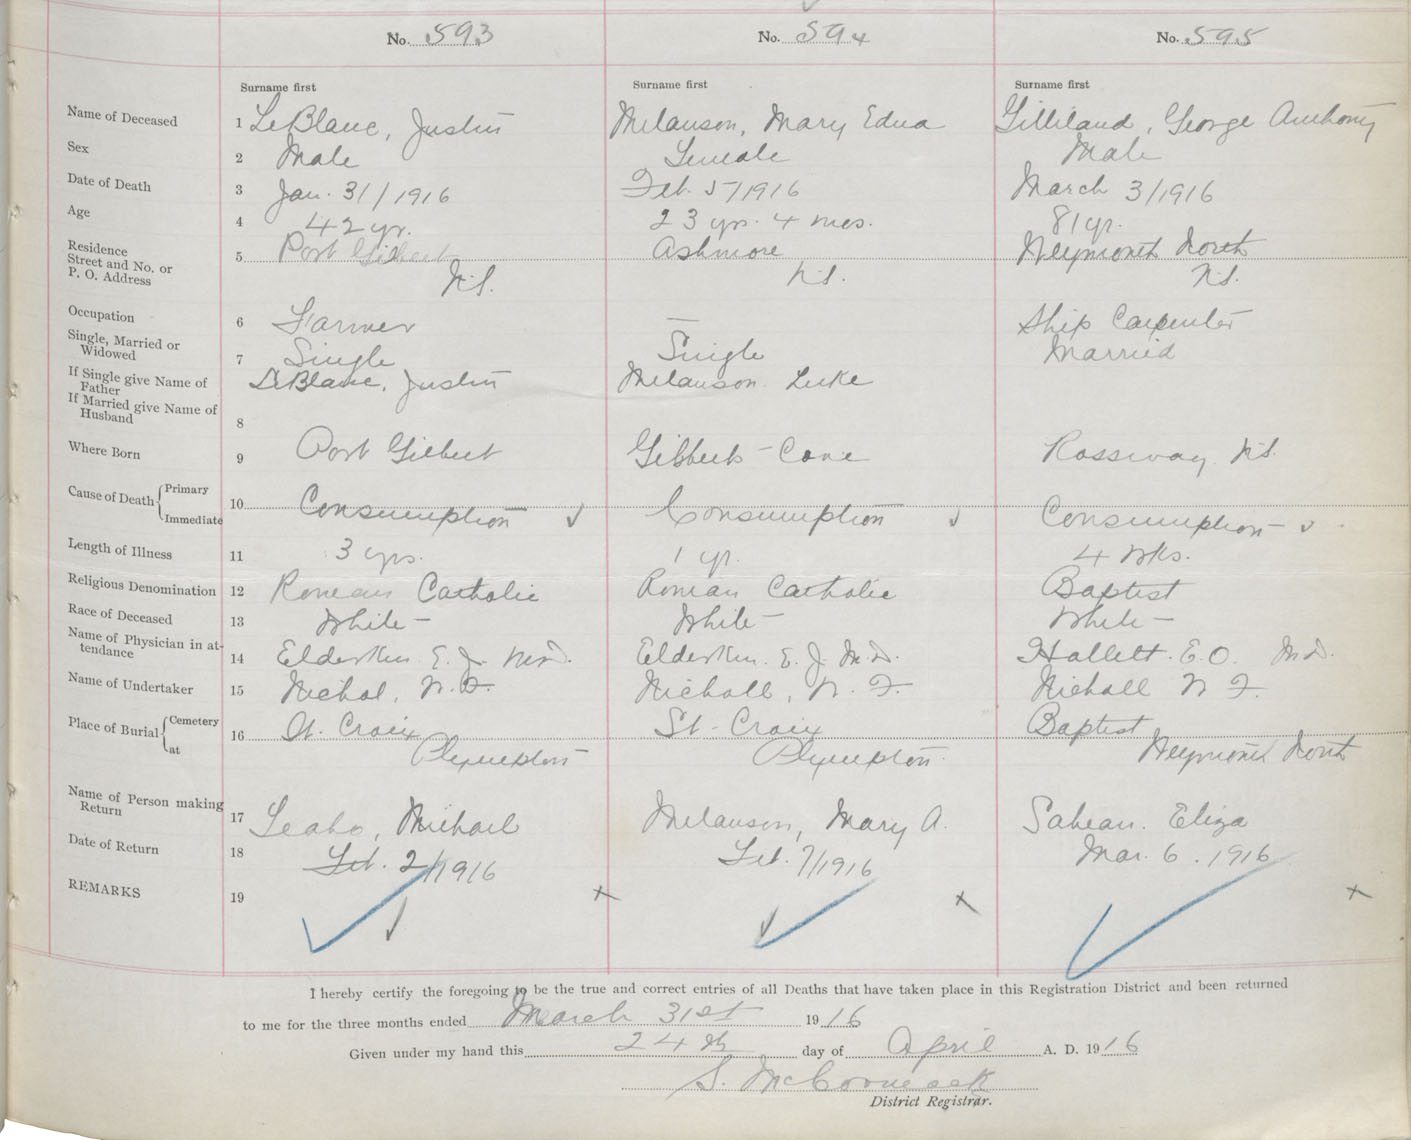 No. 593 No. 594 No. 595
Surname first Surname first Surname first
Name of Deceased 1 LeBlanc, Justin Melanson, Mary Edna Gilliland, George Anthony
Sex 2 Male Female Male
Date of Death 3 Jan. 31/1916 Feb. 5/1916 March 3/1916
Age 4 42 yr. 23 yrs. 4 mos. 81 yr.
Residence
Street and No. or 5 Port Gilbert Ashmore Weymouth North
P. O. Address N.S. N.S. N.S.
Occupation 6 Farmer — Ship Carpenter
Single, Married or
Widowed 7 Single Single Married
If Single give Name of
Father LeBlanc, Justin Melanson. Luke
If Married give Name of
Husband 8
Where Born 9 Port Gilbert Gilberts Cove Rossway. N.S.
Cause of Death Primary 10 Consumption ✓ Consumption ✓ Consumption ✓
Immediate
Length of Illness 11 3 yrs. 1 yr. 4 wks.
Religious Denomination 12 Roman Catholic Roman Catholic Baptist
Race of Deceased 13 White White White
Name of Physician in at-
tendance 14 Elderkin. E. J. M.D. Elderkin. E. J. M.D. Hallett. E. O. M.D.
Name of Undertaker 15 Nichol, N. F. Nicholl, N. F. Nicholl N F.
Place of Burial Cemetery 16 St. Croix St. Croix Baptist
at Plympton Plympton. Weymouth North
Name of Person making
Return 17 Michael Melanson, Mary A. Eliza
Date of Return 18 Feb. 2/1916 Feb. 7/1916 Mar. 6. 1916
REMARKS 19
I hereby certify the foregoing to be the true and correct entries of all Deaths that have taken place in this Registration District and been returned
to me for the three months ended March 31st 1916
Given under my hand this 24th day of April A. D. 1916
S. McCormack
District Registrar.